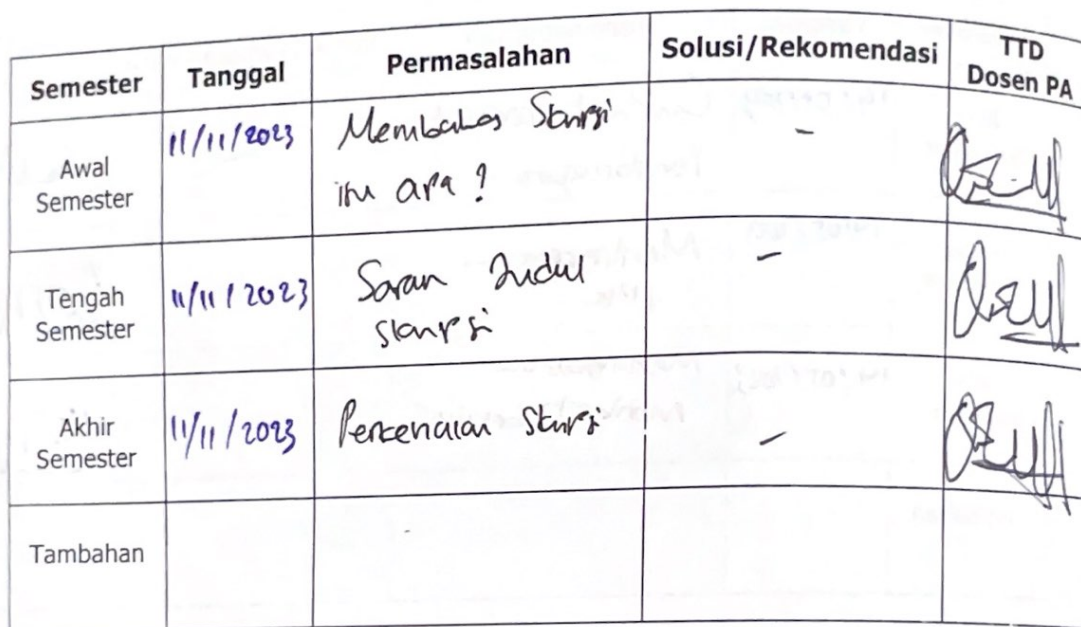 Semester Tanggal Permasalahan Solusi/Rekomendasi TTD
Dosen PA
Awal
Semester
11/11/2023
Membahas Skripsi
itu apa ?
-
Tengah
Semester
11/11/2023
Saran Judul
skripsi
-
Akhir
Semester
11/11/2023
Perkenalan Skripsi
-
Tambahan